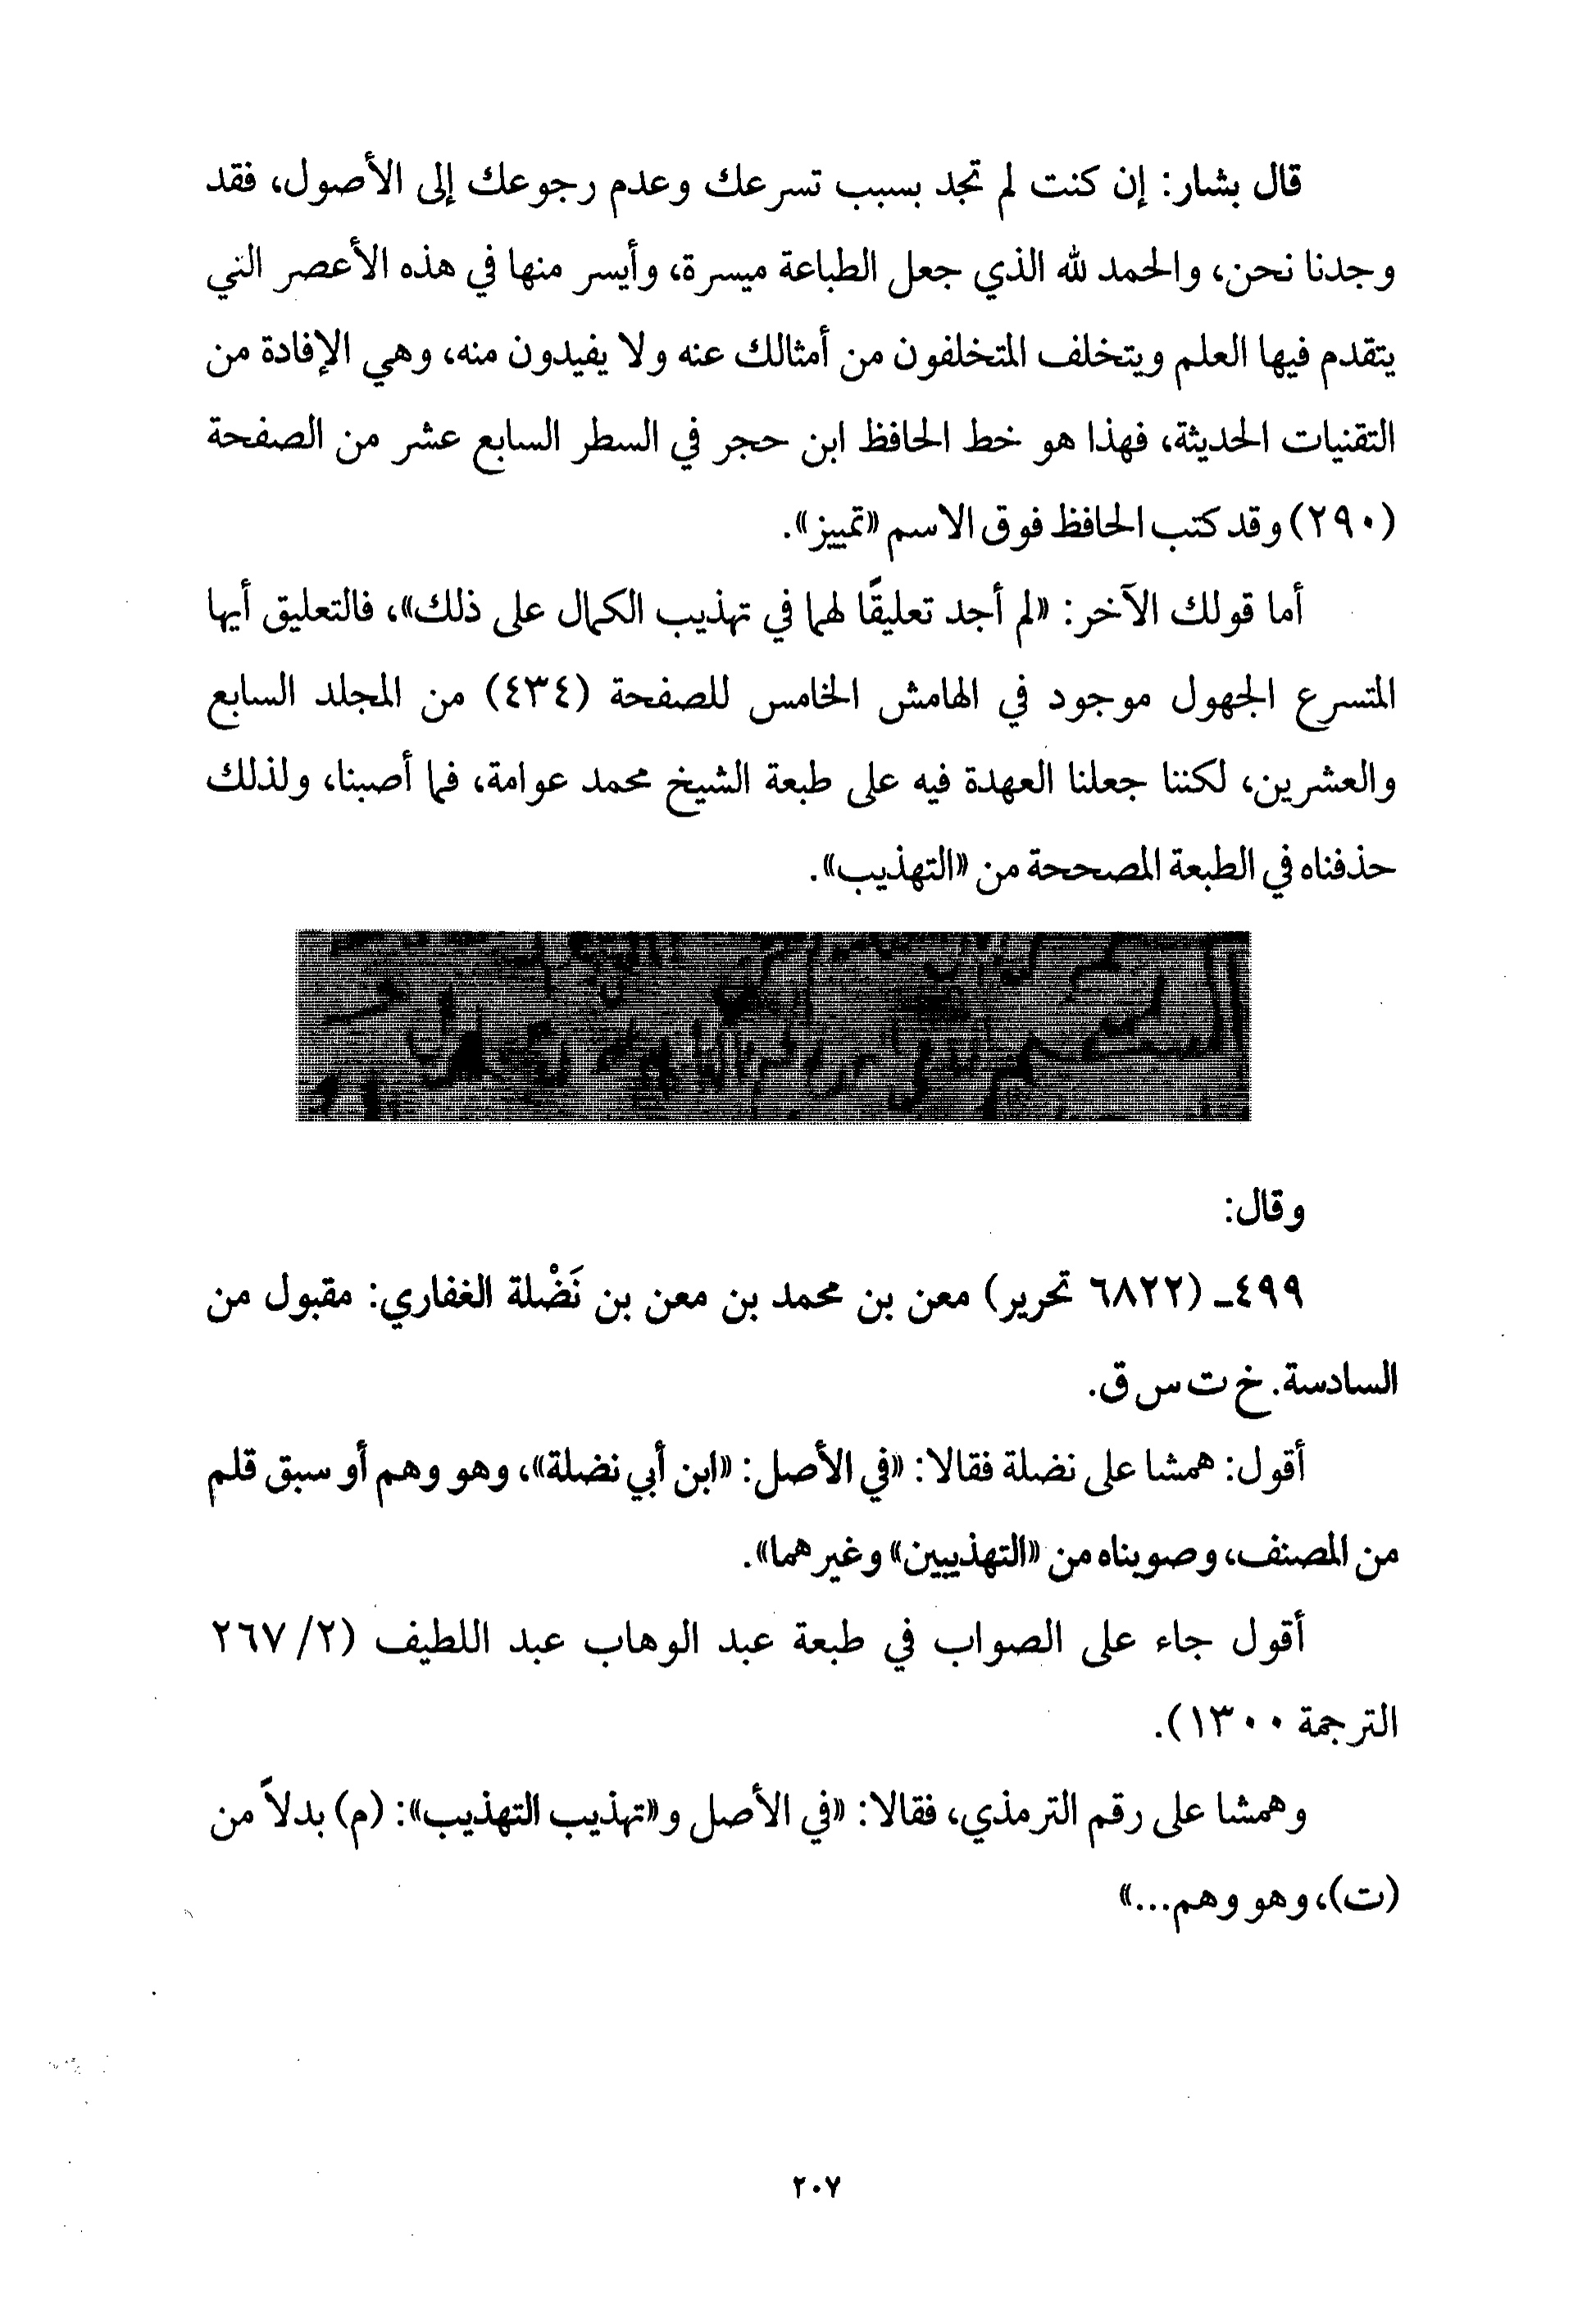 قال بشار: إن كنت لم تجد بسبب تسرعك وعدم رجوعك إلى الأصول، فقد
وجدنا نحن، والحمد لله الذي جعل الطباعة ميسرة، وأيسر منها في هذه الأعصر التي
يتقدم فيها العلم ويتخلف المتخلفون من أمثالك عنه ولا يفيدون منه، وهي الإفادة من
التقنيات الحديثة، فهذا هو خط الحافظ ابن حجر في السطر السابع عشر من الصفحة
(٢٩٠) وقد كتب الحافظ فوق الاسم «تمييز».
أما قولك الآخر: «لم أجد تعليقًا لهما في تهذيب الكمال على ذلك»، فالتعليق أيها
المتسرع الجهول موجود في الهامش الخامس للصفحة (٤٣٤) من المجلد السابع
والعشرين، لكننا جعلنا العهدة فيه على طبعة الشيخ محمد عوامة، فما أصبنا، ولذلك
حذفناه في الطبعة المصححة من «التهذيب».
وقال:
٤٩٩ـ (٦٨٢٢ تحرير) معن بن محمد بن معن بن نَضْلة الغفاري: مقبول من
السادسة. خ ت س ق.
أقول: همشا على نضلة فقالا: «في الأصل: «ابن أبي نضلة»، وهو وهم أو سبق قلم
من المصنف، وصوبناه من «التهذيبين» وغيرهما».
أقول جاء على الصواب في طبعة عبد الوهاب عبد اللطيف (٢/ ٢٦٧
الترجمة ١٣٠٠).
وهمشا على رقم الترمذي، فقالا: «في الأصل و«تهذيب التهذيب»: (م) بدلاً من
(ت)، وهو وهم...»
٢٠٧